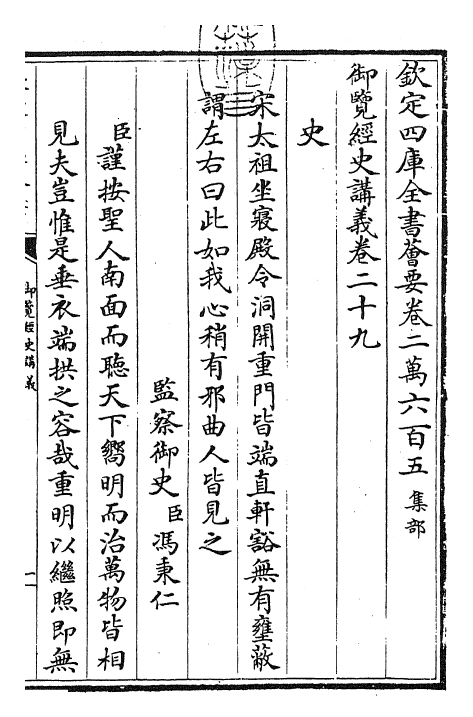 欽定四庫全書薈要卷二萬六百五 集部
御覽經史講義卷二十九
史
宋太祖坐寢殿令洞開重門皆端直軒豁無有壅蔽
謂左右曰此如我心稍有邪曲人皆見之
監察御史臣馮秉仁
臣謹按聖人南面而聽天下嚮明而治萬物皆相
見夫豈惟是垂衣端拱之容哉重明以繼照即無
御覽經史講義
一